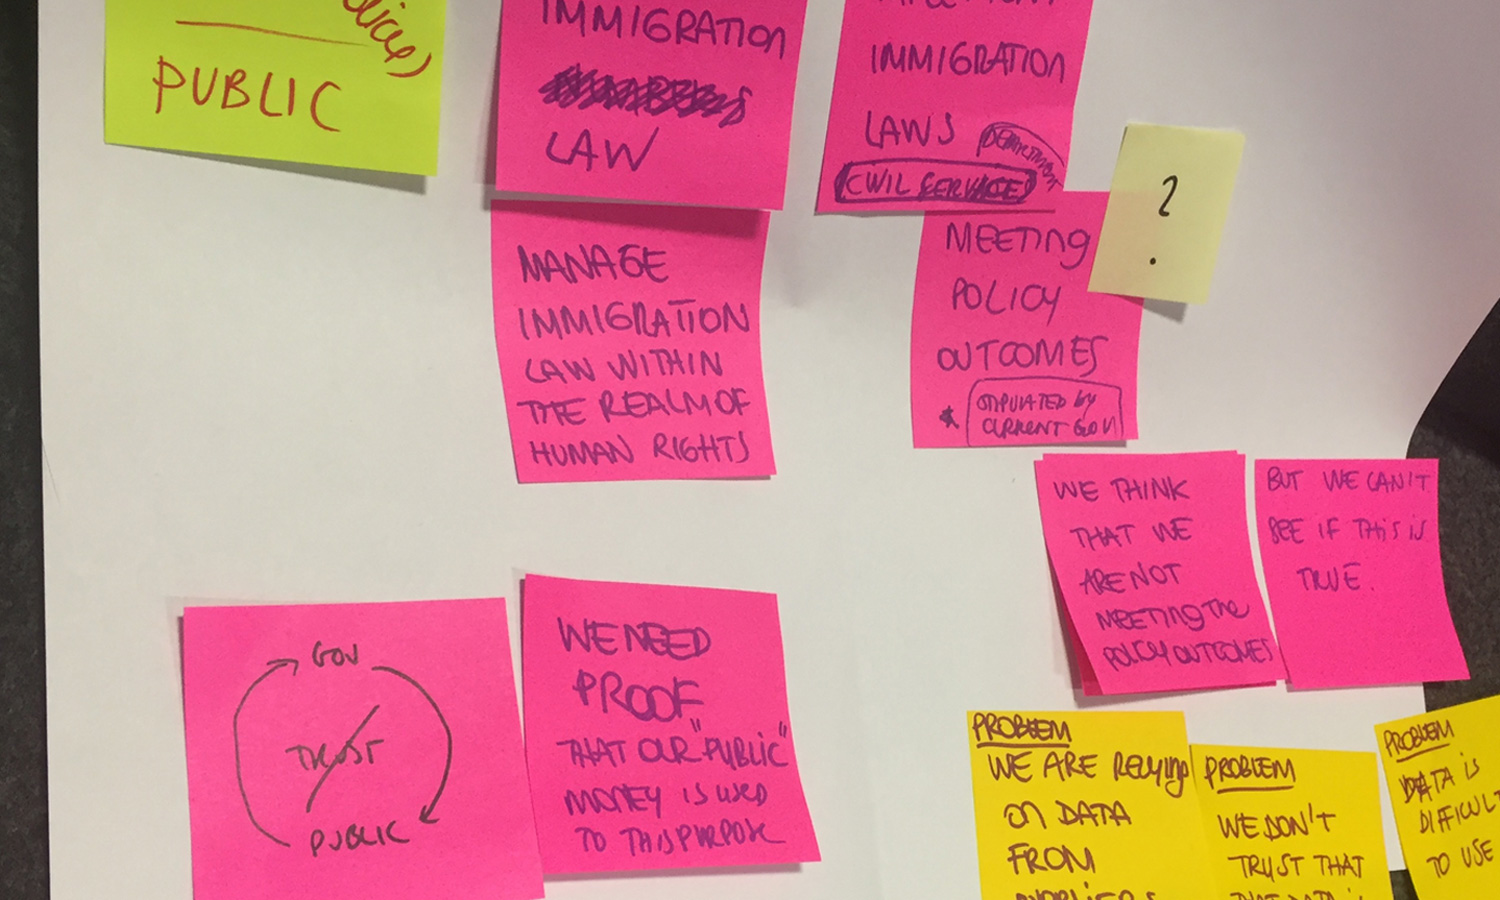 PUBLIC
IMMIGRATION
LAW
IMMIGRATION
LAWS
DEPARTMENT
CIVIL SERVICE
?
MANAGE
IMMIGRATION
LAW WITHIN
THE REALM OF
HUMAN RIGHTS
MEETING
POLICY
OUTCOMES
* STIPULATED by
CURRENT GOV
WE THINK
THAT WE
ARE NOT
MEETING THE
POLICY OUTCOMES
BUT WE CAN'T
SEE IF THIS IS
TRUE.
GOV
TRUST
PUBLIC
WE NEED
PROOF
THAT OUR "PUBLIC"
MONEY IS USED
TO THIS PURPOSE
PROBLEM
WE ARE RELYING
ON DATA
FROM
PROBLEM
WE DON'T
TRUST THAT
THAT DATA IS
PROBLEM
DATA IS
DIFFICULT
TO USE